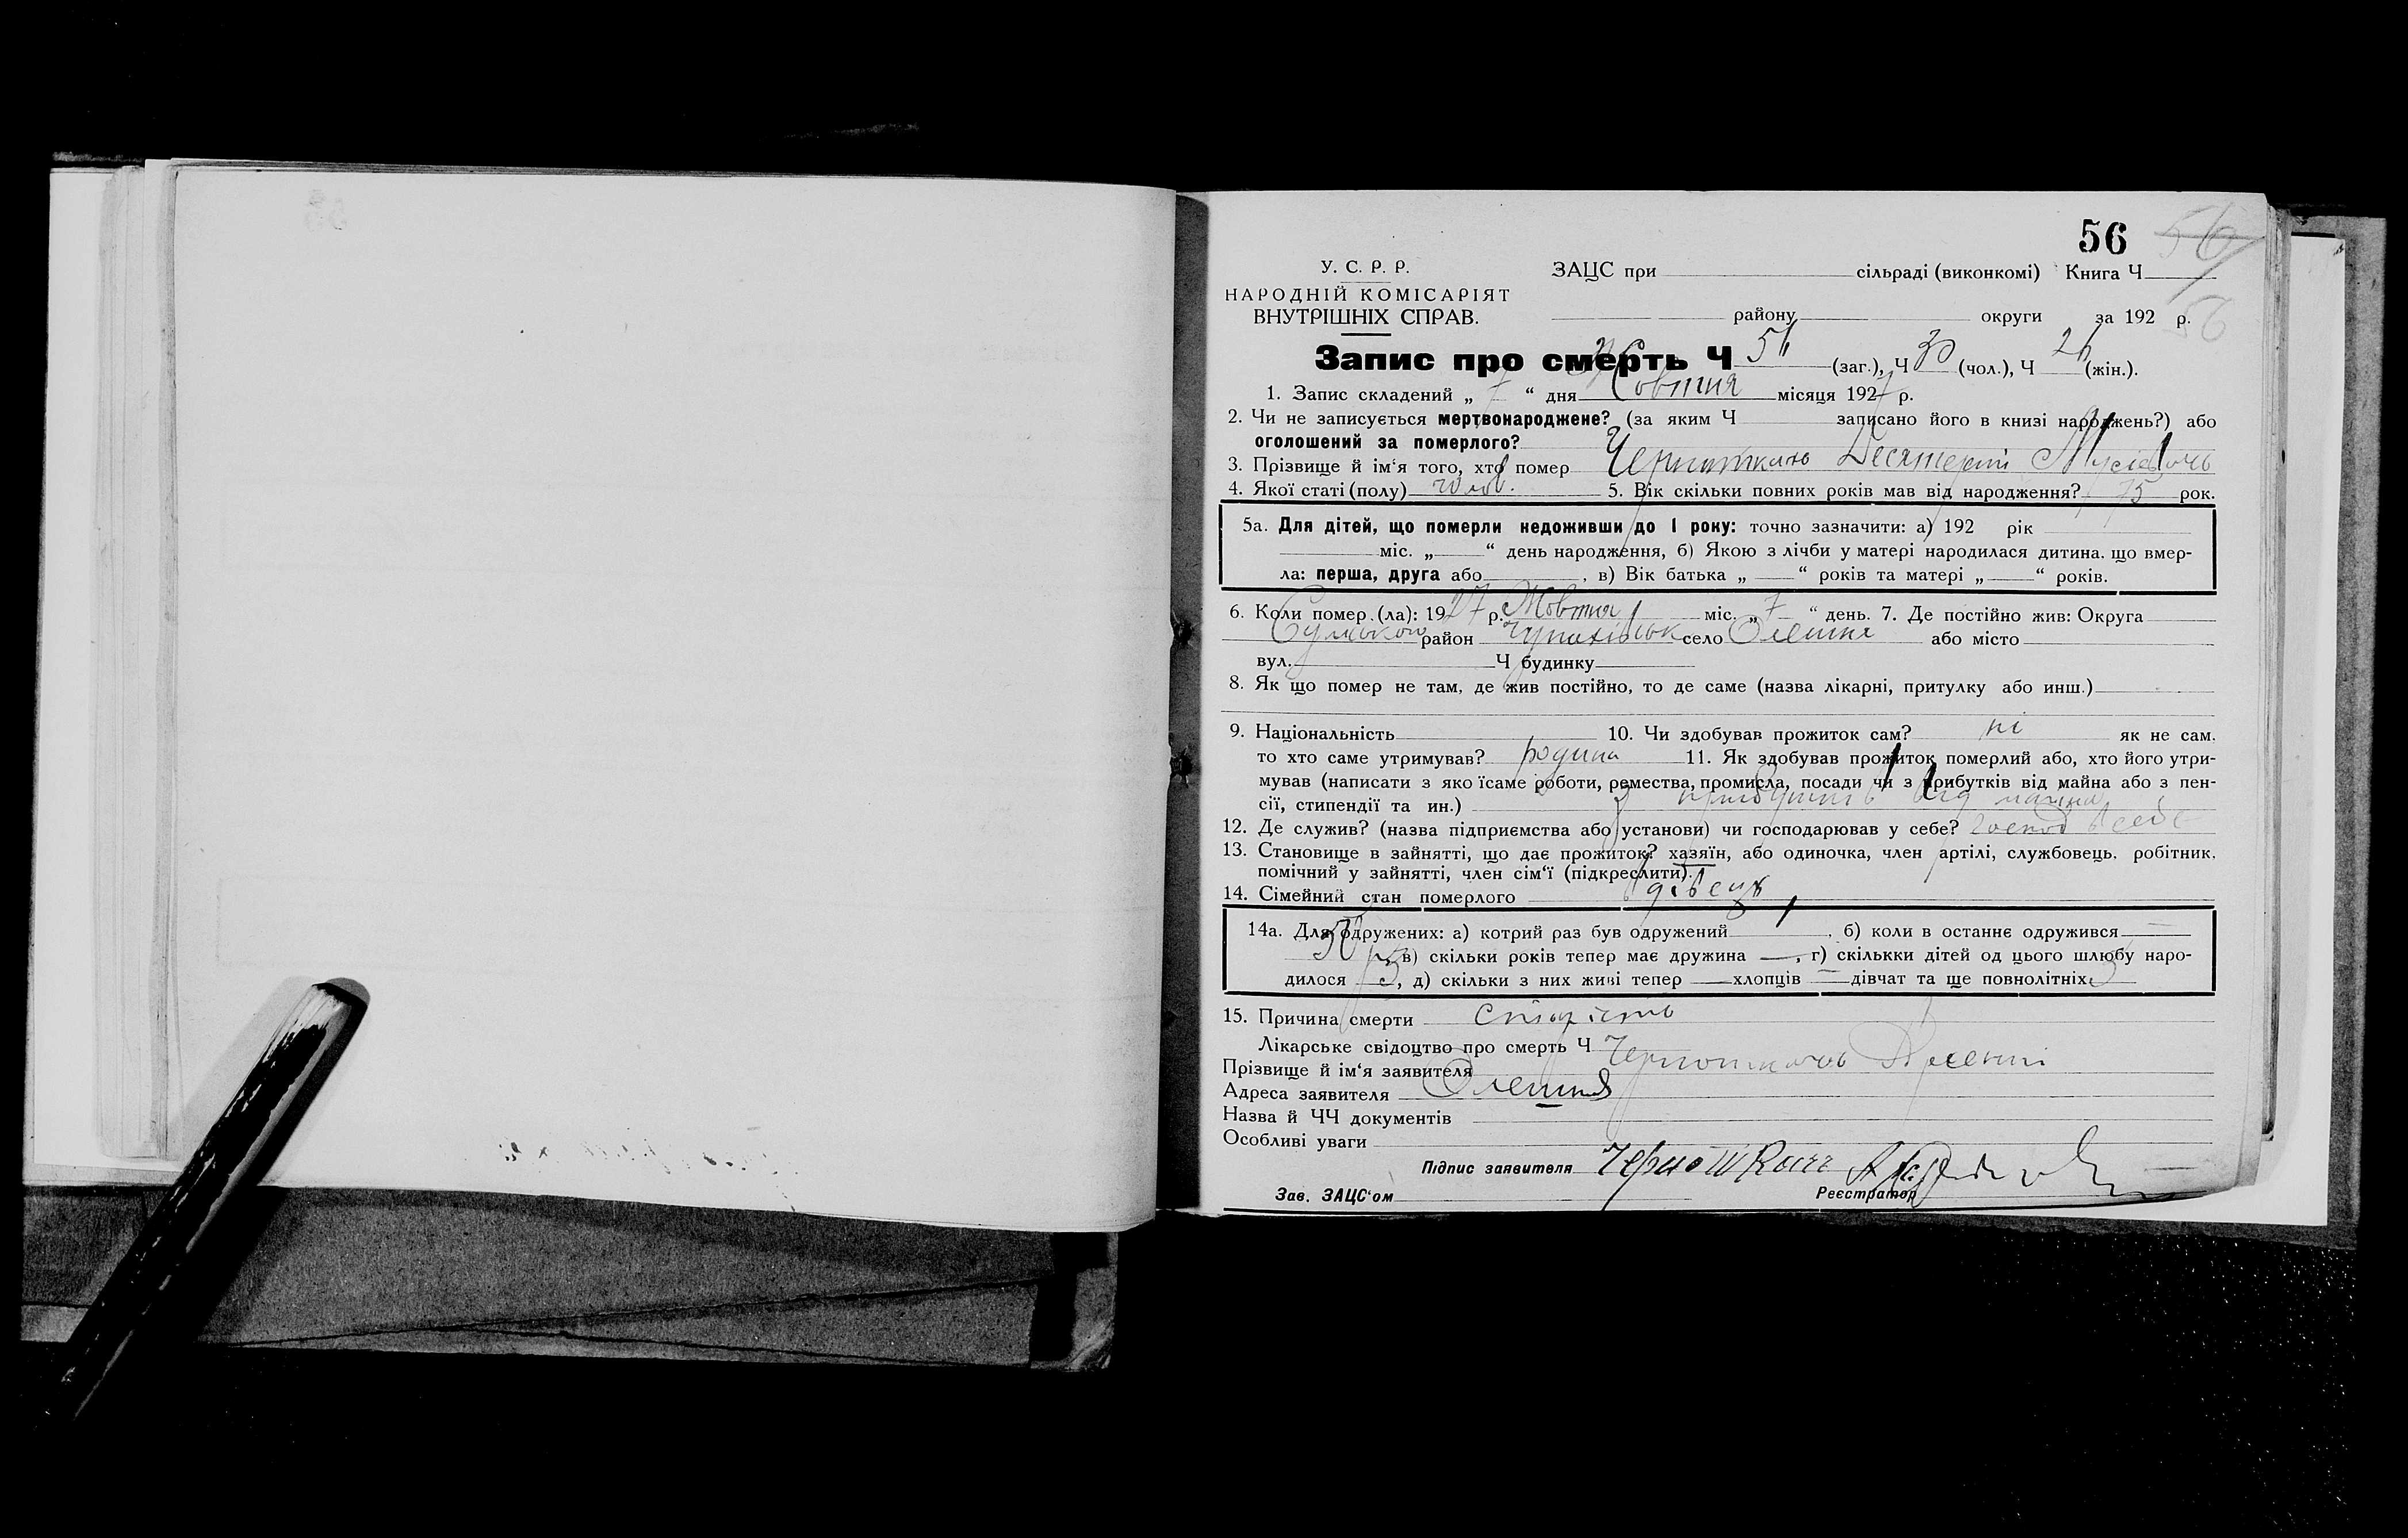 56 56
56
У. С. Р. Р.
НАРОДНІЙ КОМІСАРІЯТ
ВНУТРІШНІХ СПРАВ.
ЗАЦС при сільраді (виконкомі) Книга Ч
району округи за 192 р.
Запис про смерть Ч 56 (заг.), Ч 30 (чол.), Ч 26 (жін.).
1. Запис складений „ 7 “ дня Жовтня місяця 1927 р.
2. Чи не записується мертвонароджене? (за яким Ч записано його в книзі народжень?) або
оголошений за померлого?
3. Прізвище й ім‘я того, хто помер Мусієвичь
4. Якої статі (полу) чолов. 5. Вік скільки повних років мав від народження? 75 рок.
5а. Для дітей, що померли недоживши до 1 року: точно зазначити: а) 192 рік
міс. „ “ день народження, б) Якою з лічби у матері народилася дитина, що вмер-
ла: перша, друга або , в) Вік батька „ “ років та матері „ “ років.
6. Коли помер (ла): 1927 р. Жовтня міс. „ 7 “ день. 7. Де постійно жив: Округа
Сумського район Чупахівськ село Олешня або місто
вул. Ч будинку
8. Як що помер не там, де жив постійно, то де саме (назва лікарні, притулку або инш.)
9. Національність 10. Чи здобував прожиток сам? ні як не сам,
то хто саме утримував? родина 11. Як здобував прожиток померлий або, хто його утри-
мував (написати з яко їсаме роботи, ремества, промисла, посади чи з прибутків від майна або з пен-
сії, стипендії та ин.) з прибутків від майна
12. Де служив? (назва підприємства або установи) чи господарював у себе? господ в себе
13. Становище в зайнятті, що дає прожиток? хазяїн, або одиночка, член артілі, службовець, робітник,
помічний у зайнятті, член сім‘ї (підкреслити).
14. Сімейний стан померлого вдівець
14а. Для одружених: а) котрий раз був одружений 1, б) коли в останнє одружився
50 р. в) скільки років тепер має дружина —, г) скількки дітей од цього шлюбу наро-
дилося 5, д) скільки з них живі тепер — хлопців — дівчат та ще повнолітніх 5
15. Причина смерти старість
Лікарське свідоцтво про смерть Ч
Прізвище й ім‘я заявителя Арсеній
Адреса заявителя Олешня
Назва й ЧЧ документів
Особливі уваги
Підпис заявителя
Зав. ЗАЦС‘ом Реєстратор